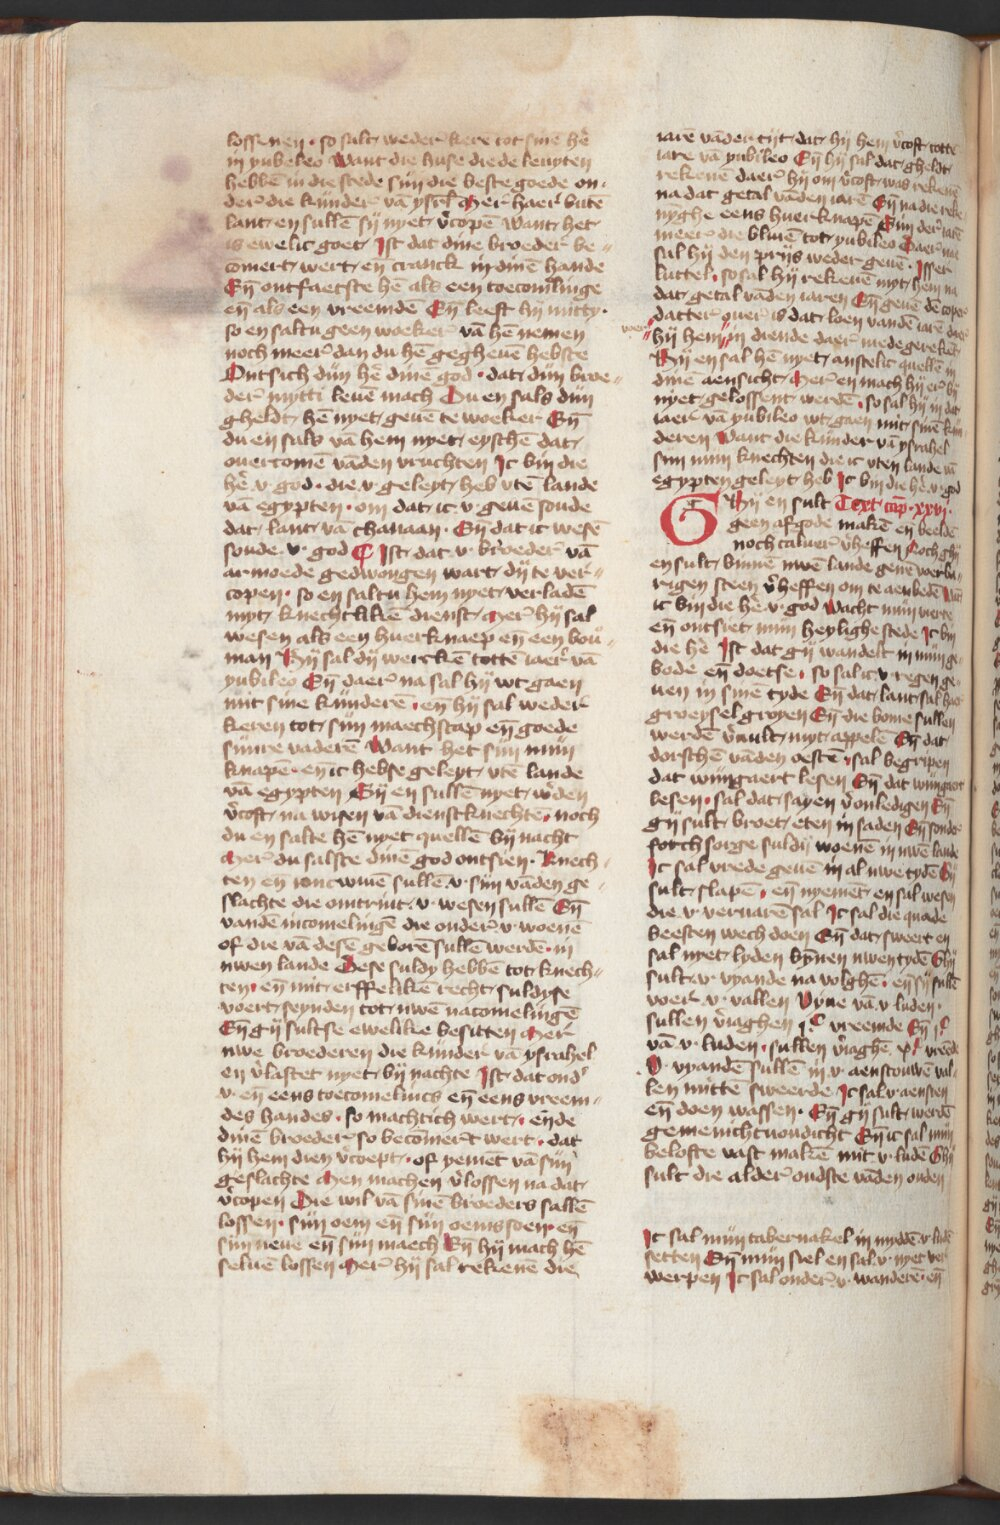 lossenen · so salt weder kere tot sinē hē
in yubileo Want die huse die de leuyten
hebbē in die stede sijn die beste goede on-
der die kinder vā ysrl Mer haer butē
lant en sullē sij nyet v̄copē Want het
is ewelic goet Ist dat dine broeder be-
comert wert eñ cranck in dinē hande
Eñ ontfaetste hē als een toecomlinge
eñ als een vreemdē Eñ leeft hij mit dy·
so en saltu geen woeker vā hē nemen
noch meer dan du hē gegheuē hebste
Ontsich dijn hē dinē god · dat dijn broe-
der mit ti leuē mach Du en sals dijn
gheldt hē nyet geuē te woeker Eñ
du en sals vā hem nyet eysschē dat
ouercomē vādē vruchten Ic bin die
hē v god · die v geleyt heb vtē lande
vā egypten · om dat ic v geuē soude
dat lant vā chanaan · Eñ dat ic wesē
soude v god Ist dat v broeder vā
armoede gedwongen wart dij te ver-
copen · so en saltu hem nyet verladē
myt knechtlikē dienst Mer hij sal
wesen als een huerknaep eñ een bou-
man Hij sal dij werckē tottē iaer vā
yubileo Eñ daer na sal hij wt gaen
mit sine kinderē · eñ hij sal weder
keren tot sijn maechscap eñ goede
sijnre vaderē Want het sijn mijn
knapē · eñ ic hebse geleyt vtē lande
vā egypten Sij en sullē nyet w̄den
v̄coft na wisen vā dienstknechtē · noch
du en salte hē nyet quellē bij nacht
Mer du salste dinē god ontsien · Knech-
ten eñ ioncwiuē sullē v sijn vādē ge-
slachte die omtrint v wesen sullē Eñ
vandē incomelingē die onder v woenē
of die vā desē geborē sullē werdē in
uwen lande Dese suldy hebbē tot knech-
ten · eñ mit erffelikē recht suldyse
voert seynden tot uwē nacomelingē
Eñ gij sultse ewelike besitten Mer
uwe broederen die kinder vā ysrahel
en v̄lastet nyet bij nachte Ist dat ond
v eñ eens toecomelincs eñ eens vreem-
des handes · so machtich wert · ende
dinē broeder so becōmert wert · dat
hij hem dien v̄coept · of yemēt vā sijn
geslachte Men machen v̄lossen na dat
v̄copen Die wil vā sinē broeders sallē
lossen · sijn oem eñ sijn oems soen eñ
sijn neue eñ sijn maech Eñ hij mach hē
seluē lossen Mer hij sal rekenē die
iarē vāden tijt dat hij hem v̄coft totte
iare vā yubileo Eñ hij sal dat gheldt
rekenē daer hij om v̄coft was rekenē
na dat getal vādē iarē Eñ na die reke
nyghe eens huerknapē Sijn der iarē
meer die bliuē tot yubileo Daer na
sal hij den prijs weder geuē · Isser
luttel · so sal hij rekenē myt hem na
dat getal vādē iaren Eñ geuē dē coper
datter ouer is dat loen vandē iarē daer
hij hem in diende daer mede gerekēt
Hij en sal hē nyet anstelic quellē in
dinē aensicht Mer en mach hij er bij
nyet gelossent werdē · so sal hij in dat
iaer vā yubileo wt gaen mit sinē kin
deren Want die kinder vā ysrahel
sijn mijn knechten die ic vten lande vā
egypten geleyt heb Ic bin die hē v god
Ghij en sult Text cap̄ · xxvi ·
geen afgode makē eñ beeldē
noch caluer v̄heffen Noch ghij
en sult binnē uwē lande geē voerba
rigen steen v̄heffen om te aenbedē Wāt
ic bin die hē v god Wacht mijn werc
eñ ontsiet mijn heylighe stede Ic bin
die hē Ist dat gij wandelt in mijn ge-
bode eñ doetse · so sal ic v regen ge-
uen in sinē tyde Eñ dat lant sal haer
groeysel groyen Eñ die bome sullen
werdē v̄uult myt appelē Eñ dat
dorschē vāden oestē · sal begripen
dat wijngaert lesen Eñ dat wijngaert
lesen · sal dat sayen v̄onledigen Eñ
gij sult broet eten in saden Eñ sonder
sorch sorge suldij woenē in uwē lande
Ic sal vrede geuē in al uwe tydē Gij
sult slapē · eñ nyemēt en sal wesen
die v veruarē sal Ic sal die quade
beesten wech doen Eñ dat sweert en
sal nyet lyden bynnen uwen tydē Ghij
sult v vyande na volghē · eñ sij sullē
voer v vallen Vyue vā v luden
sullen v̄iaghen j.c vreemde Eñ j.c
vā v luden · sullen v̄iaghē x.m vreēde
V vyandē sullē in v aenscouwē val-
len mittē sweerde Ic sal v aensien
eñ doen wassen · Eñ gij sult werdē
gemenichuoudicht Eñ ic sal mijn
belofte vast makē mit v ludē Ghij
sult die alder oudste vādē ouden
Ic sal mijn tabernakel in myddē v ludē
setten Eñ mijn siel en sal v nyet ver
werpen Ic sal onder v wanderē · eñ